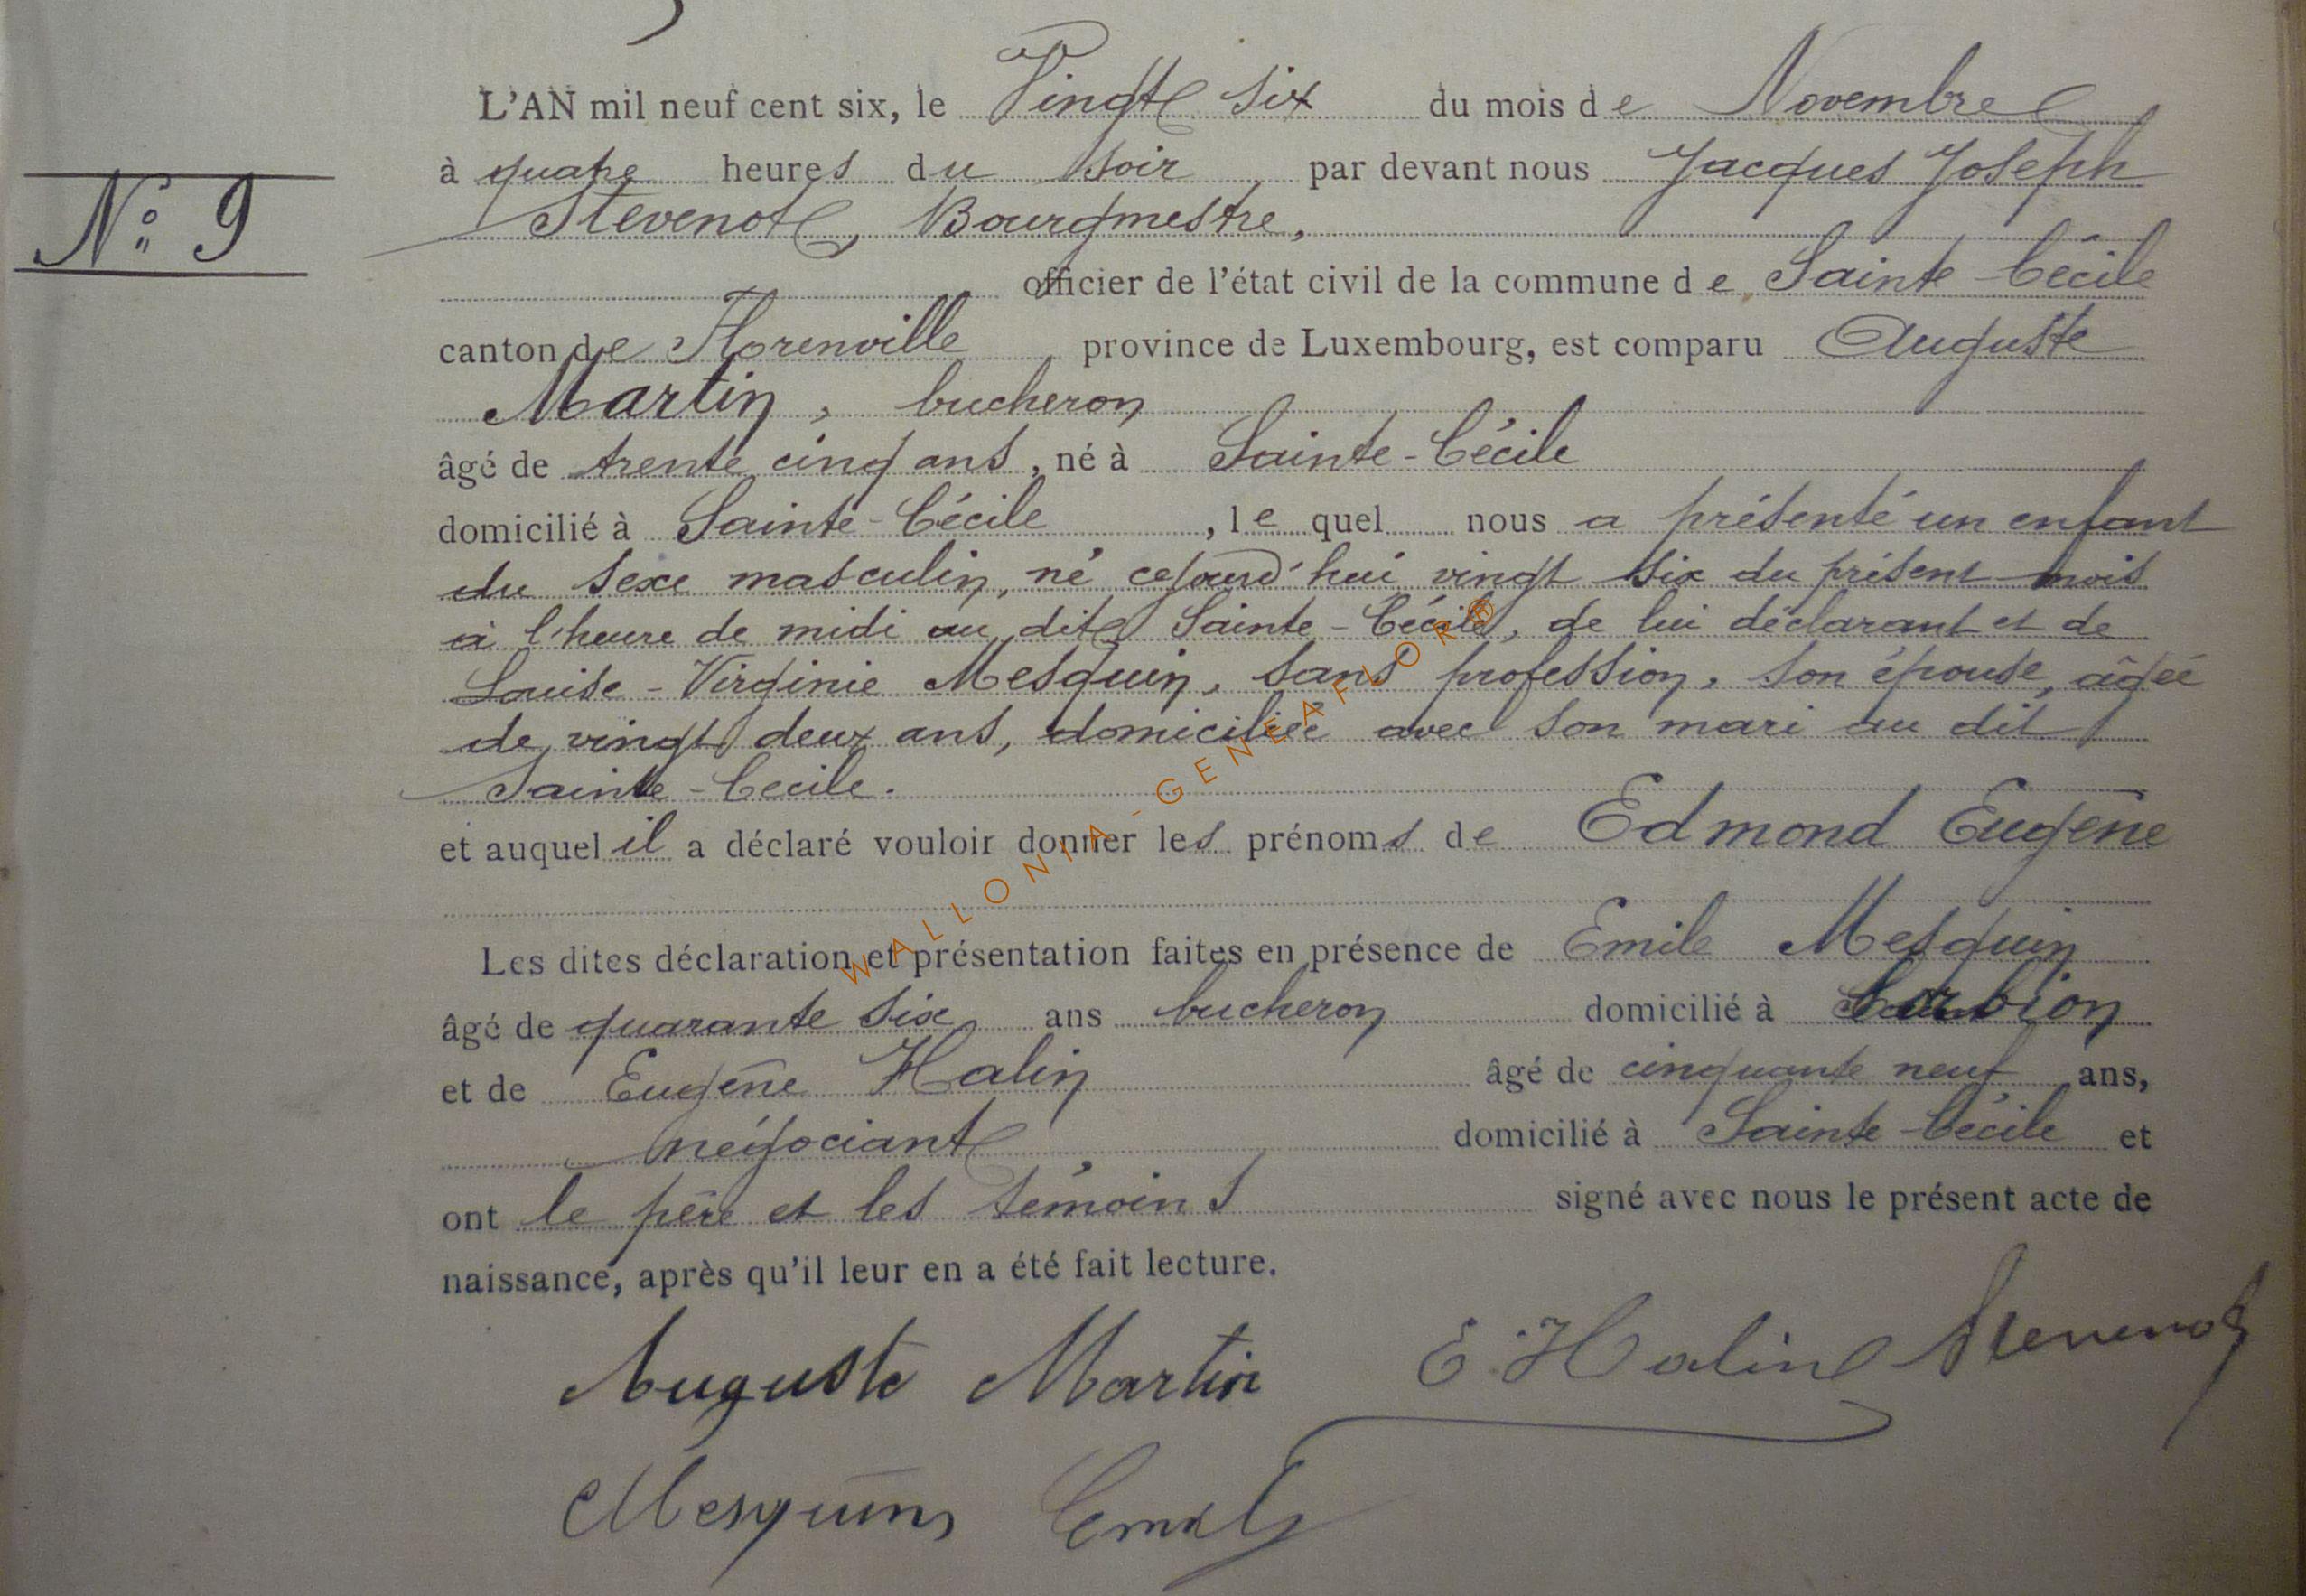 L'AN mil neuf cent six, le Vingt six du mois de Novembre
à quatre heures du soir, par devant nous Jacques Joseph
N° 9
Stevenot, Bourgmestre,
officier de l'état civil de la commune de Sainte Cécile
canton de Florenville province de Luxembourg, est comparu Auguste
Martin, bucheron
âgé de trente cinq ans, né à Sainte-Cécile
domicilié à Sainte-Cécile, le quel nous a présenté un enfant
du sexe masculin, né cejourd'hui vingt six du présent mois
à l'heure de midi au dit Sainte-Cécile, de lui déclarant et de
Louise-Virginie Mesquin, sans profession, son épouse, âgée
de vingt deux ans, domiciliée avec son mari au dit
Sainte-Cecile.
et auquel il a déclaré vouloir donner les prénoms de Edmond Eugène
Les dites déclaration et présentation faites en présence de Emile Mesquin
âgé de quarante six ans bucheron domicilié à
et de Eugène Halin âgé de cinquante neuf ans,
négociant, domicilié à Sainte-Cécile et
ont le père et les témoins signé avec nous le présent acte de
naissance, après qu'il leur en a été fait lecture.
Auguste Martin E. Halin Stevenot
Mesquin Emil
WALLONIA-GENEAFLOR®